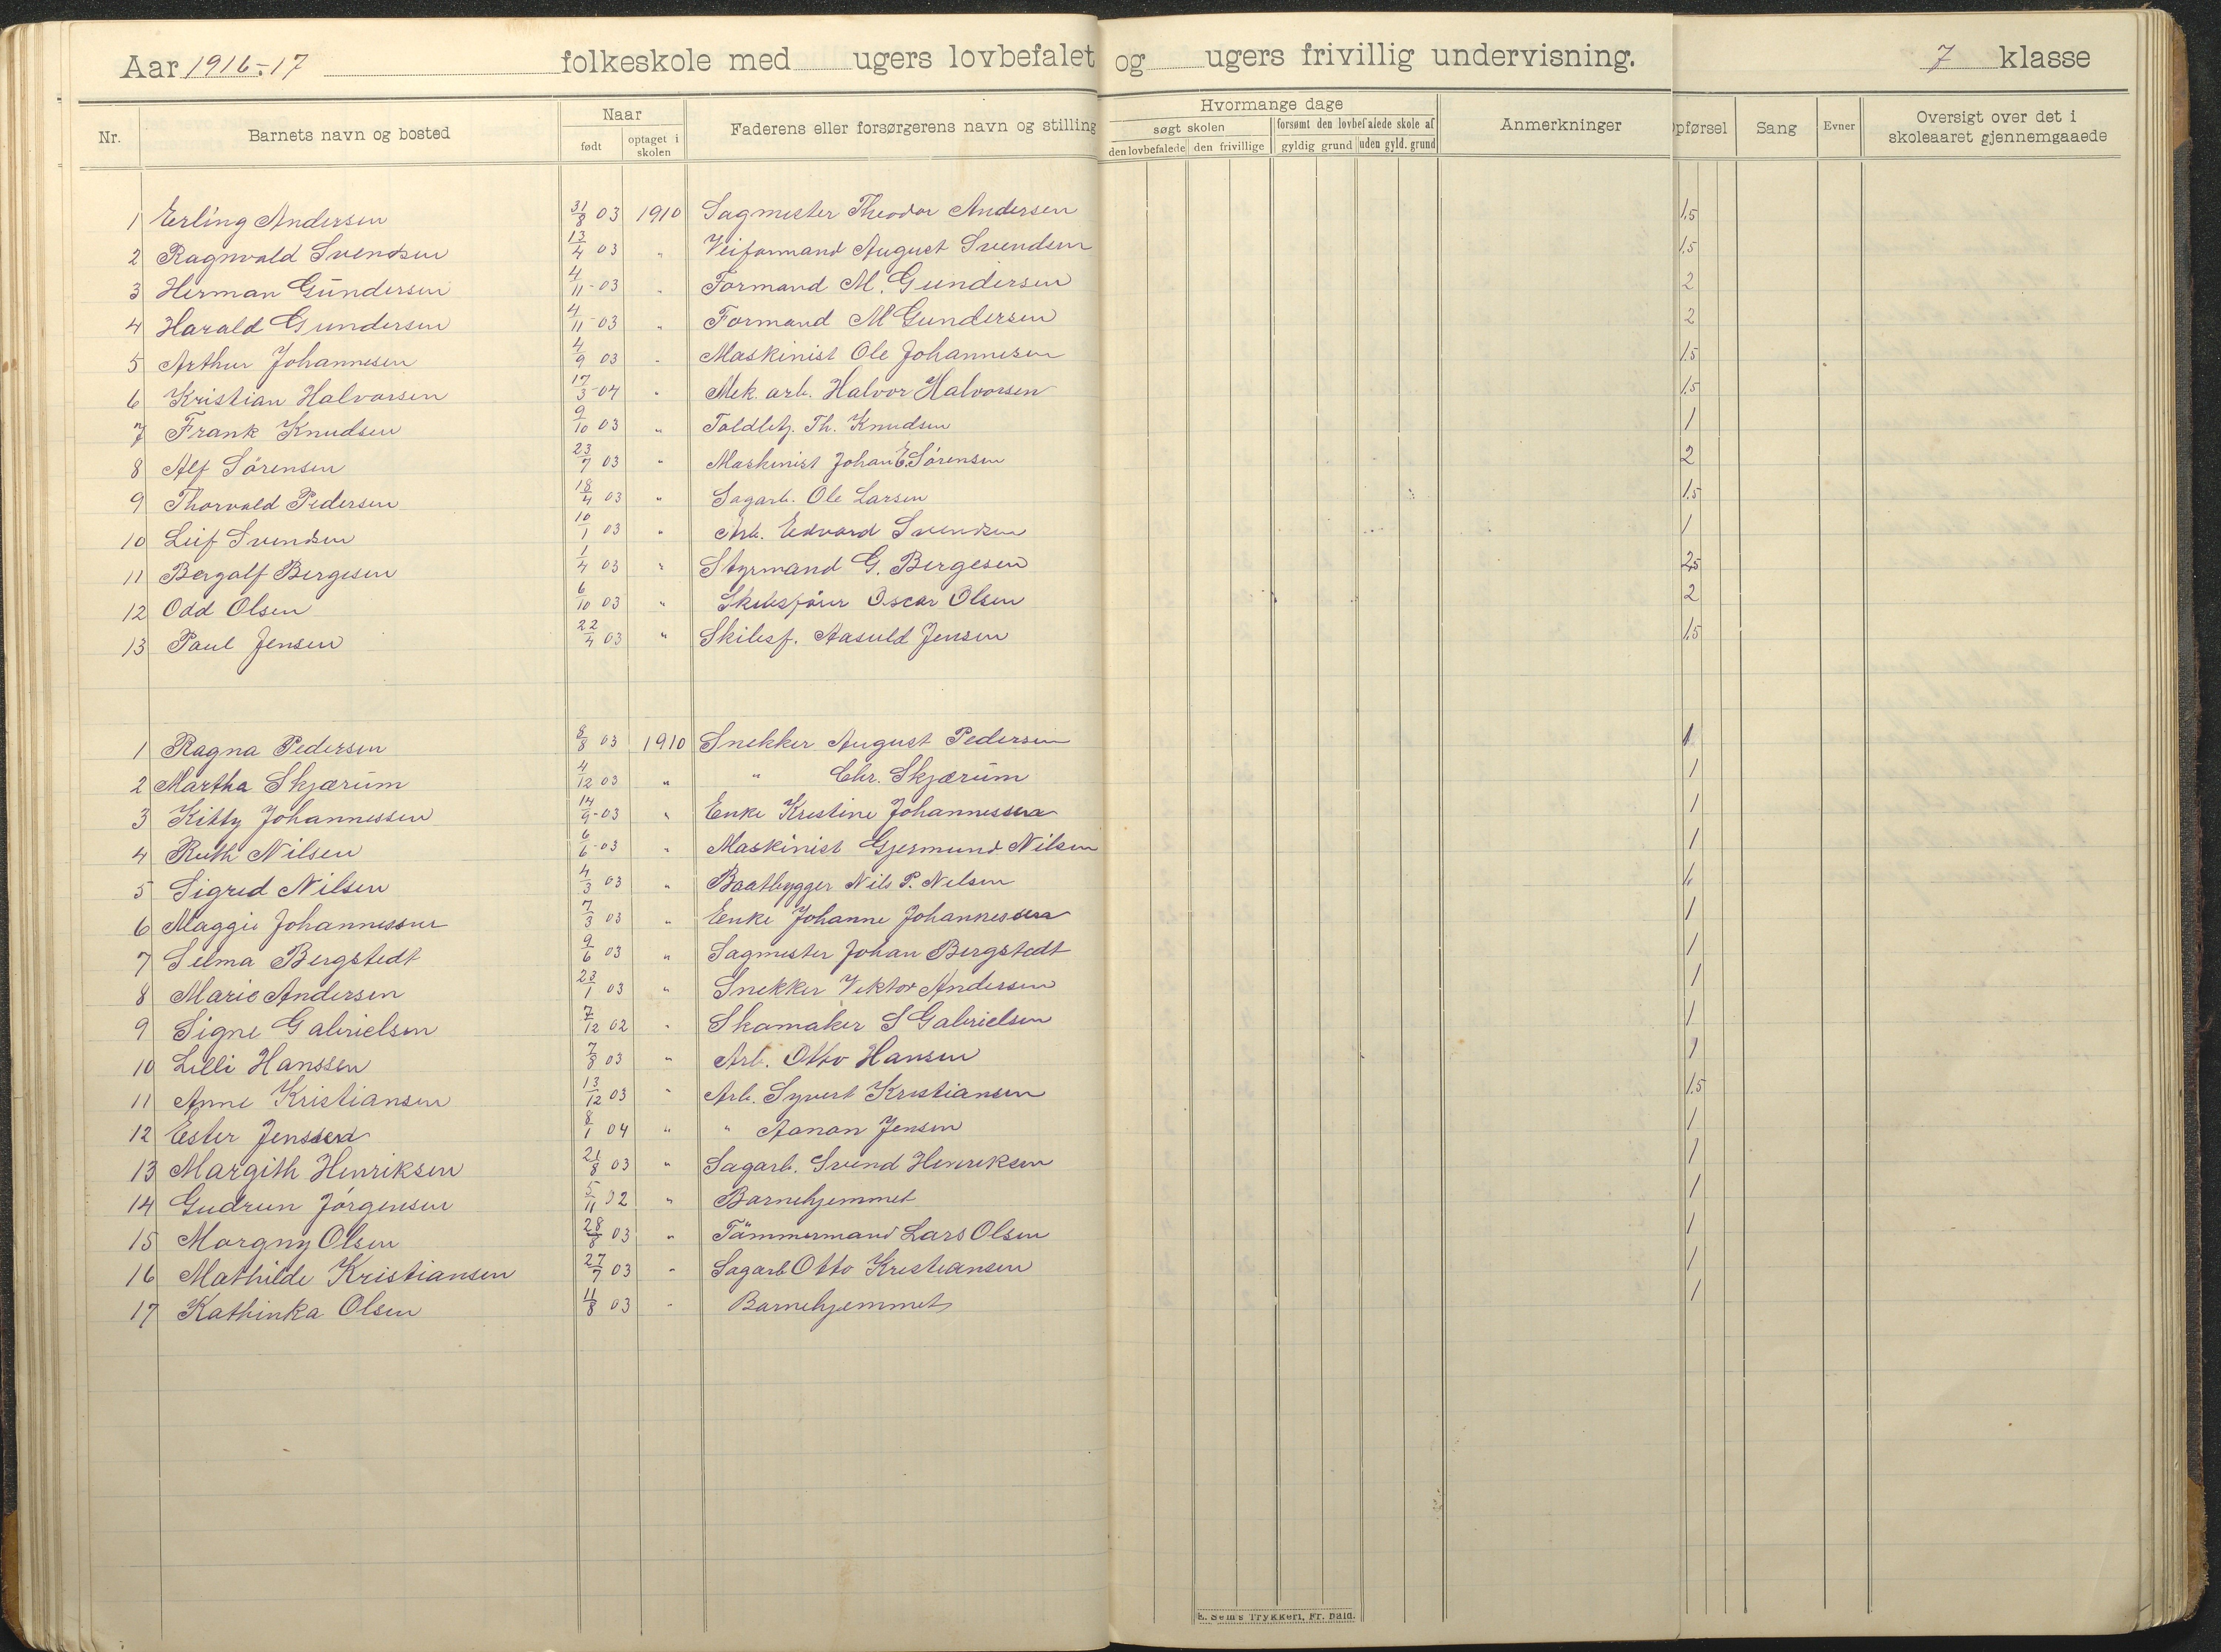 Aar 1916-17 folkeskole med ugers lovbefalet og ugers frivillig undervisning. 7 klasse
Nr. Barnets navn og bosted Naar født optaget i skolen Faderens eller forsørgerens navn og stilling Hvormange dage søgt skolen den lovbefalede den frivillige forsømt den lovbefalede skole af gyldig grund uden gyld. grund Anmerkninger pførsel Sang Evner Oversigt over det i skoleaaret gjennemgaaede
1 Erling Andersen 31/8 03 1910 Sagmester Theodor Andersen 1.5
2 Ragnvald Svendsen 13/4 03 " Veiformand August Svendsen 1.5
3 Herman Gundersen 4/11-03 " Formand M. Gundersen 2
4 Harald Gundersen 4/11-03 " Formand M Gundersen 2
5 Arthur Johannesen 4/9 03 " Maskinist Ole Johannesen 1.5
6 Kristian Halvorsen 17/3-04 " Mek. arb. Halvor Halvorsen 1.5
7 Frank Knudsen 9/10 03 " Toldbetj. Th. Knudsen 1
8 Alf Sörensen 23/7 03 " Maskinist Johan E. Sörensen 2
9 Thorvald Pedersen 18/4 03 " Sagarb. Ole Larsen 1.5
10 Leif Svendsen 10/1 03 " Arb. Edvard Svendsen 1
11 Bergalf Bergesen 1/4 03 " Styrmand G. Bergesen 2,5
12 Odd Olsen 6/10 03 " Skibsförer Oscar Olsen 2
13 Paul Jensen 22/4 03 " Skibsf. Aasuld Jensen 1.5
1 Ragna Pedersen 8/8 03 1910 Snekker August Pedersen 1
2 Martha Skjærum 4/12 03 " " Chr. Skjærum 1
3 Kitty Johannessen 14/9-03 " Enke Kristine Johannessen 1
4 Ruth Nilsen 6/6-03 " Maskinist Gjermund Nilsen 1
5 Sigrid Nilsen 4/3 03 " Baatbygger Nils P. Nilsen 1.
6 Maggie Johannessen 7/3 03 " Enke Johanne Johannessen 1
7 Selma Bergstedt 9/6 03 " Sagmester Johan Bergstedt 1
8 Marie Andersen 23/1 03 " Snekker Viktor Andersen 1
9 Signe Gabrielsen 7/12 02 " Skomaker S Gabrielsen 1
10 Lilli Hanssen 7/8 03 " Arb. Otto Hansen 1
11 Anne Kristiansen 13/12 03 " Arb. Syvert Kristiansen 1.5
12 Ester Jenssen 8/1 04 " " Aanon Jensen 1
13 Margith Henriksen 21/8 03 " Sagarb. Svend Henriksen 1
14 Gudrun Jörgensen 5/11 02 " Barnehjemmet 1
15 Margny Olsen 28/8 03 " Tömmermand Lars Olsen 1
16 Mathilde Kristiansen 27/7 03 " Sagarb Otto Kristiansen 1
17 Kathinka Olsen 11/8 03 " Barnehjemmet 1
E. Sem's Trykkeri, Fr. hald.